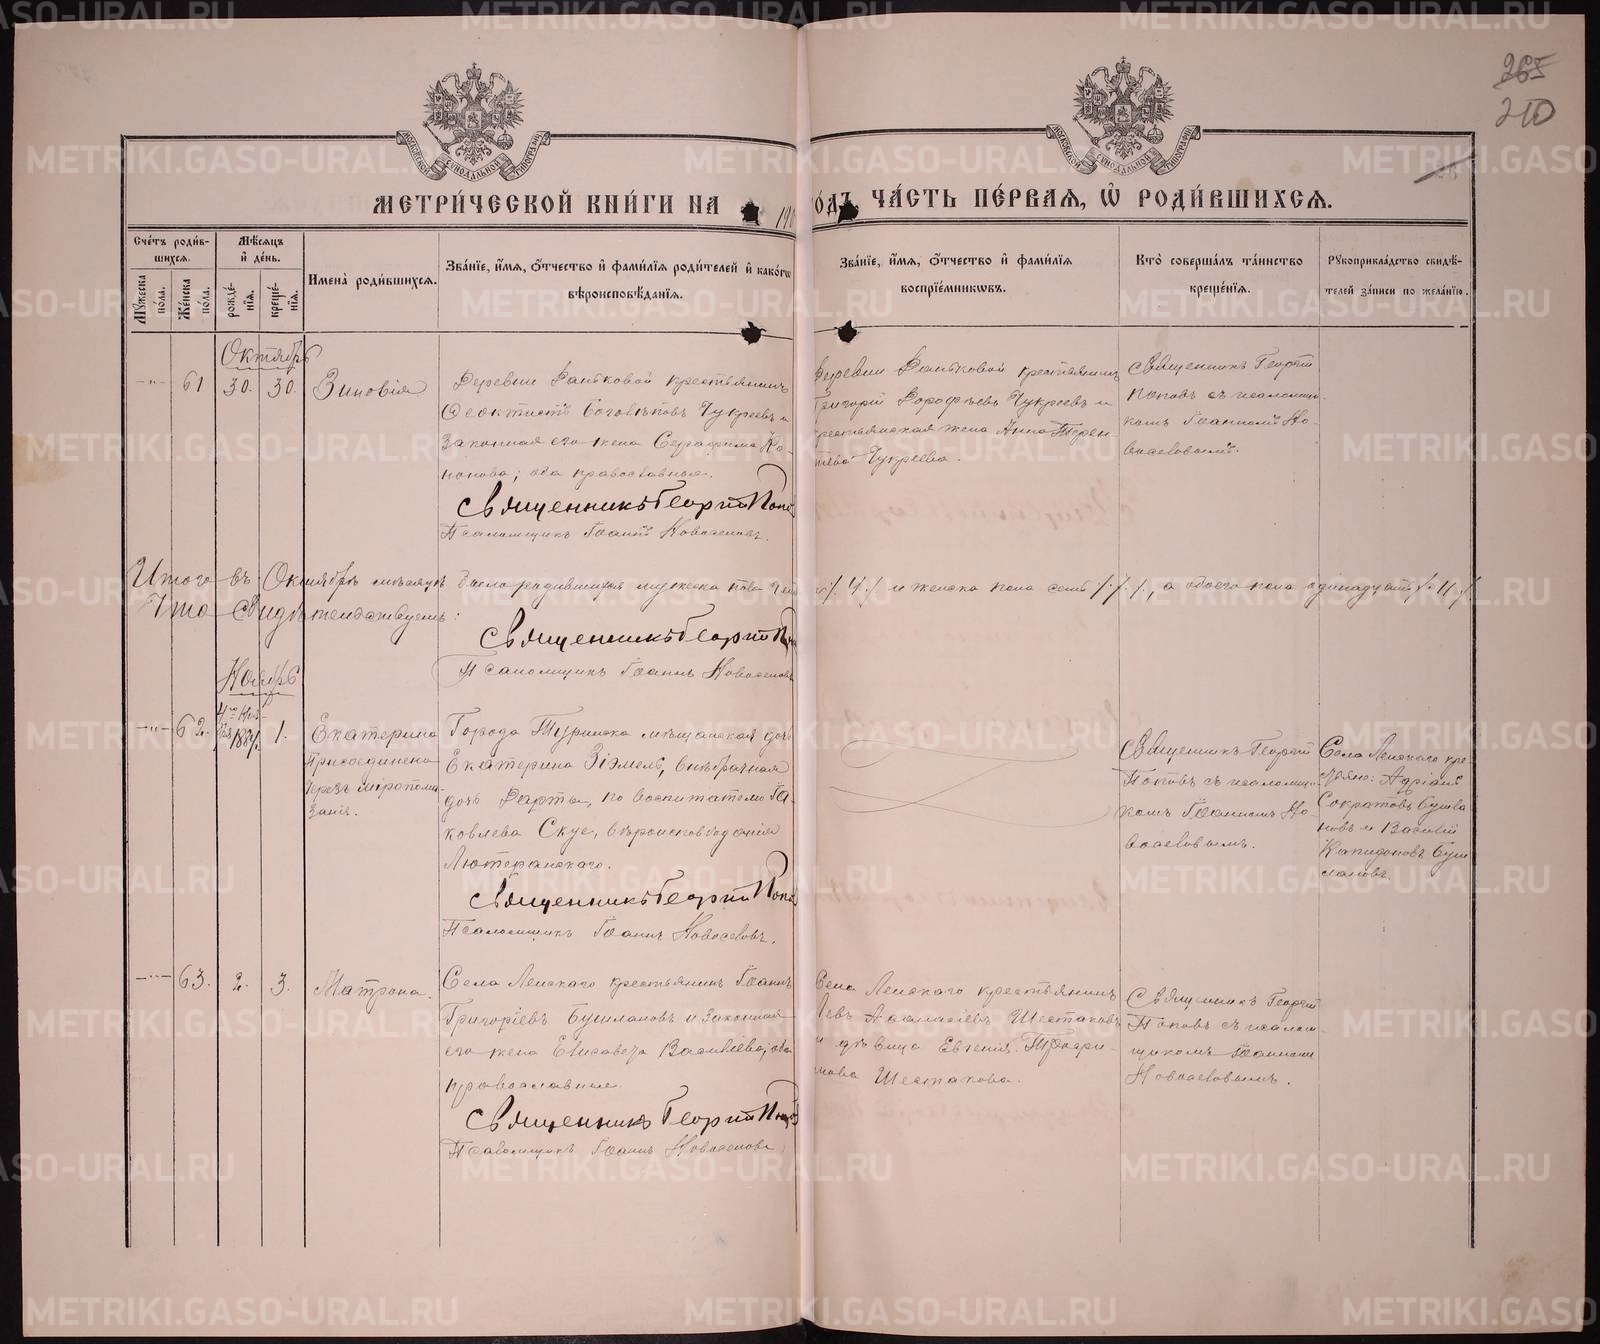 265
210
МЕТРИЧЕСКОЙ КНИГИ НА 190 ОДЪ ЧАСТЬ ПЕРВАЯ, Ѿ РОДИВШИХСЯ.
Счетъ родившихся.
Мѣсяцъ и день.
Мужеска пола.
Женска пола.
рожденія.
крещенія.
Имена родившихся.
Званіе, имя, отчество и фамилія родителей и какогѡ вѣроисповѣданія.
Званіе, имя, отчество и фамилія воспріемникѡвъ.
Кто совершалъ таинство крещенія.
Рукоприкладство свидѣтелей записи по желанію.
Октябрь
61 30. 30. Зиновія
Деревни крестьянинъ
Ѳеоктистъ Боголѣповъ Чукреевъ и
законная его жена Серафима Ко-
нонова; оба православные.
Священникъ Георгій Попо
Псаломщикъ Іоаннъ Новоселовъ.
Деревни крестьянинъ
Григорій Дорофѣевъ Чукреевъ и
крестьянская жена Анна Терен-
тьева Чукреева.
Священникъ Георгій
Поповъ съ псаломщи-
комъ Іоанномъ Но-
воселовымъ.
Итого въ Октябрѣ мѣсяцѣ было родившихся мужеска пола четыре /4./ и женска пола семь /7./, а обоего пола одинадцать /11./
Что свидѣтельствуемъ:
Священникъ Георгій Попо
Псаломщикъ Іоаннъ Новоселовъ
Ноябрь
62. 1884. 1. Екатерина
Присоединена
чрезъ мѵропома-
заніе.
Города Туринска мѣщанская дочь
Екатерина Зіэмель, внѣбрачная
дочь Дарты, по воспитателю Іа-
ковлева Скуе, вѣроисповѣданія
Лютеранскаго.
Священникъ Георгій Попо
Псаломщикъ Іоаннъ Новоселовъ.
Священникъ Георгій
Поповъ съ псаломщи-
комъ Іоанномъ Но-
воселовымъ.
Села Ленскаго кре-
стьяне: Адріанъ
Сократовъ Бушла-
новъ и Василій
Капидоновъ Буш-
лановъ.
63. 2. 3. Матрона.
Села Ленскаго крестьянинъ Іоаннъ
Григоріевъ Бушлановъ и законная
его жена Елисавета Васильева; оба
православные.
Священникъ Георгій Попо
Псаломщикъ Іоаннъ Новоселовъ
Села Ленскаго крестьянинъ
Левъ Аѳанасіевъ Шестаковъ
и дѣвица Евгенія
Шестакова.
Священникъ Георгій
Поповъ съ псалом-
щикомъ Іоанномъ
Новоселовымъ.
METRIKI.GASO-URAL.RU